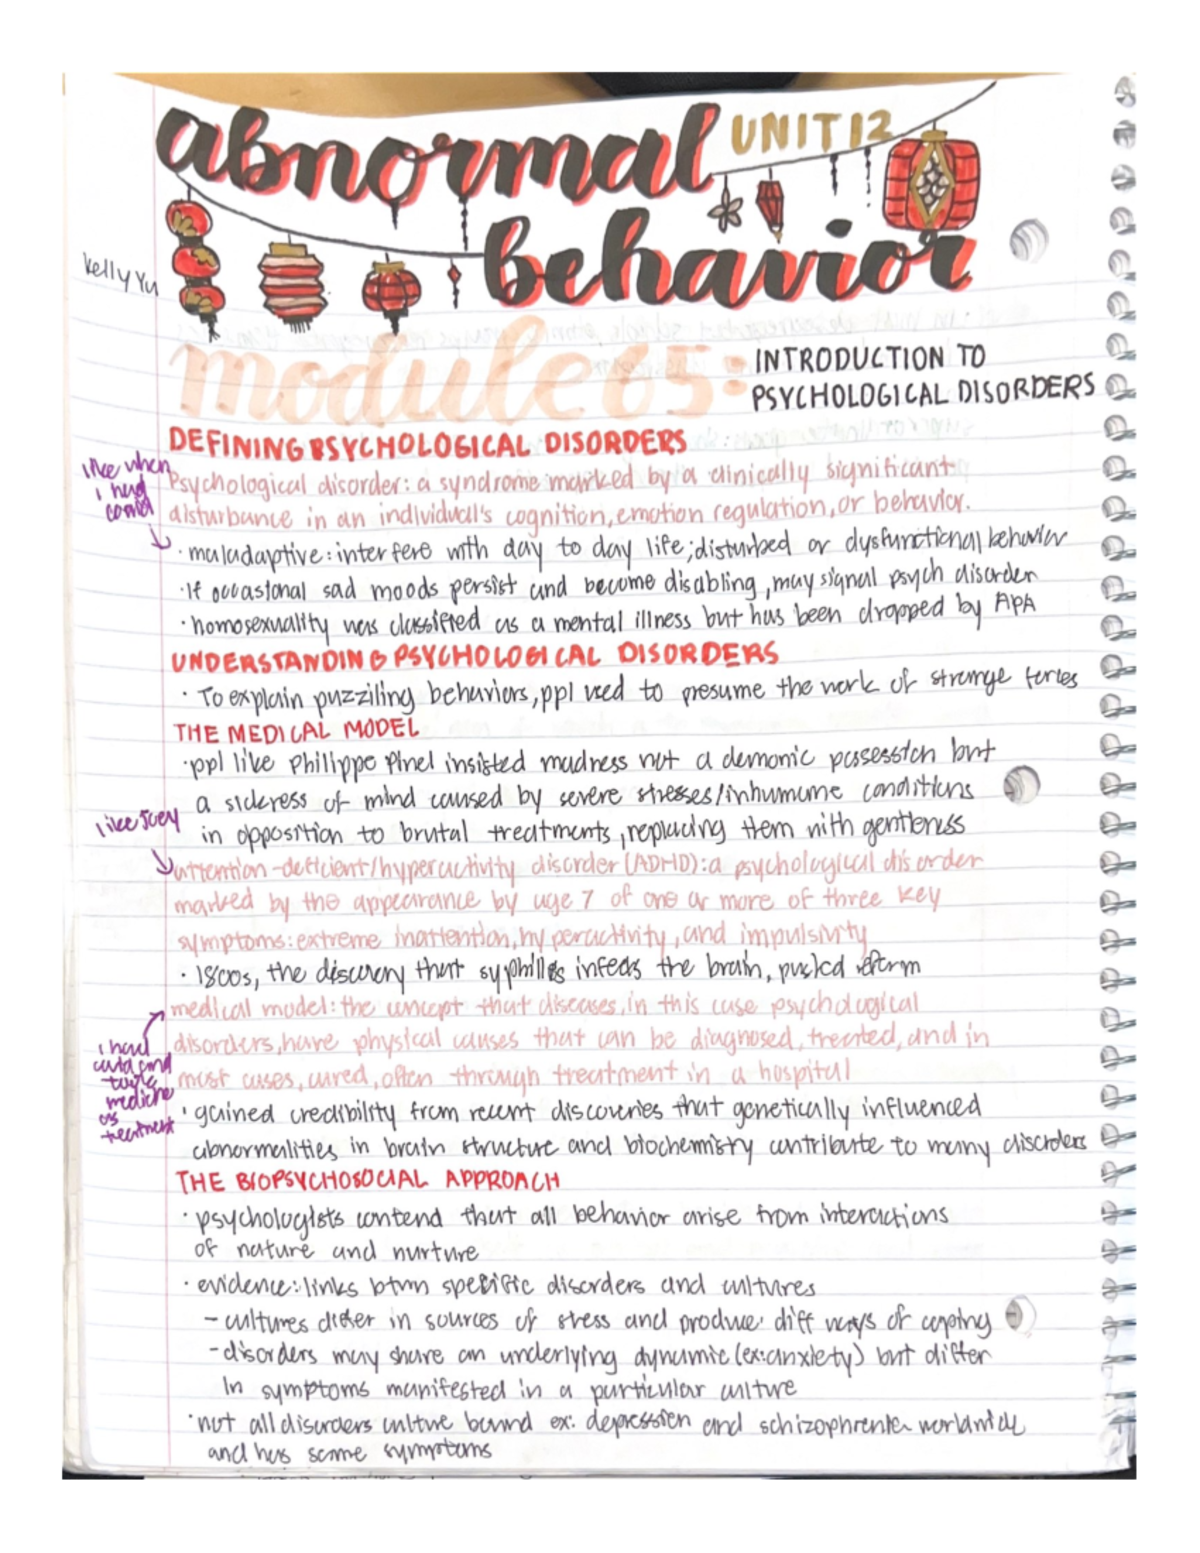 abnormal UNIT 12
behavior
Kelly Yu
module 65: INTRODUCTION TO
PSYCHOLOGICAL DISORDERS
DEFINING PSYCHOLOGICAL DISORDERS
like when
i had
Psychological disorder: a syndrome marked by a clinically significant
disturbance in an individual's cognition, emotion regulation, or behavior.
· maladaptive: interfere with day to day life; disturbed or dysfunctional behavior
· If occasional sad moods persist and become disabling, may signal psych disorder
· homosexuality was classified as a mental illness but has been dropped by APA
UNDERSTANDING PSYCHOLOGICAL DISORDERS
· To explain puzziling behaviors, ppl used to presume the work of strange forces
THE MEDICAL MODEL
· ppl like Philippe Pinel insisted madness not a demonic possession but
a sickness of mind caused by severe stresses/inhumane conditions
in opposition to brutal treatments, replacing them with gentleness
like Joey
attention-deficient/hyperactivity disorder (ADHD): a psychological disorder
marked by the appearance by age 7 of one or more of three key
symptoms: extreme inattention, hyperactivity, and impulsivity
· 1800s, the discovery that syphillis infects the brain, pushed reform
medical model: the concept that diseases, in this case psychological
disorders, have physical causes that can be diagnosed, treated, and in
most cases, cured, often through treatment in a hospital
i had
and
medicine
as
treatment
· gained credibility from recent discoveries that genetically influenced
abnormalities in brain structure and biochemistry contribute to many disorders
THE BIOPSYCHOSOCIAL APPROACH
· psychologists contend that all behavior arise from interactions
of nature and nurture
· evidence: links btwn specific disorders and cultures
- cultures differ in sources of stress and produce diff ways of coping
- disorders may share an underlying dynamic (ex: anxiety) but differ
in symptoms manifested in a particular culture
· not all disorders culture bound ex: depression and schizophrenia worldwide
and has same symptoms